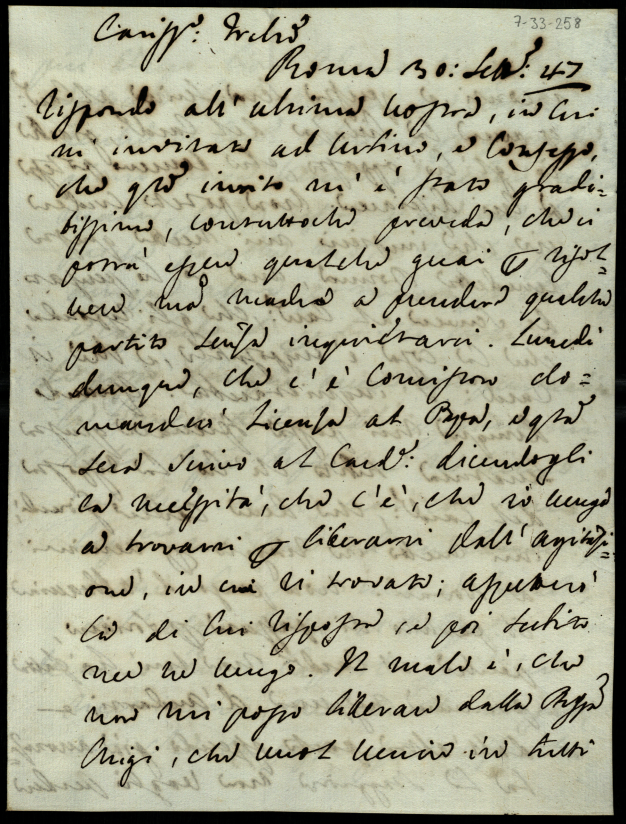 7-33-258
Cariss:º Frello
Roma 30: Setť: 47
Rispondo all' ultima vostra, in cui
mi invitate ad Urbino, e confesso,
che gtõ invito m' è stato gradi=
tissimo, contuttoche preveda, che ci
potrà essere qualche guai ꝑ risol=
vere mã madre a prendere qualche
partito senza inquietarci. Lunedì
dunque, che c' è Comisione do=
manderò licenza al Papa, e qtã
sera scrivo al Card: dicendogli
la necessità, che c'è, che io venga
a trovarvi ꝑ liberarvi dall' agitazi=
one, in cui vi trovate; aspetterò
la di lui risposta, e poi subito
me ne vengo. Il male è, che
non mi posso liberare dalla Pssã
Chigi, che vuol venire in tutti